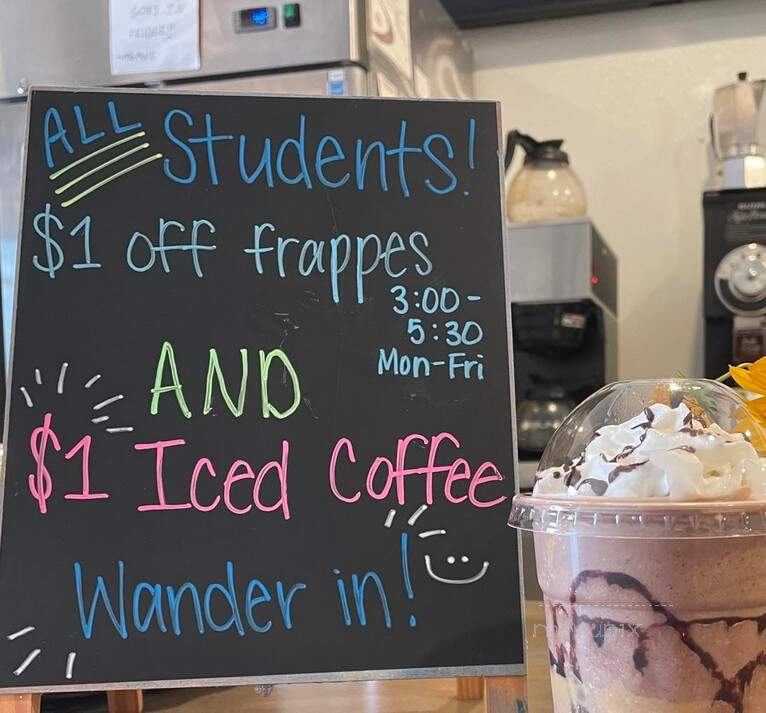 ALL Students!
$1 off frappes
3:00-
5:30
Mon-Fri
AND
$1 Iced Coffee
Wander in!